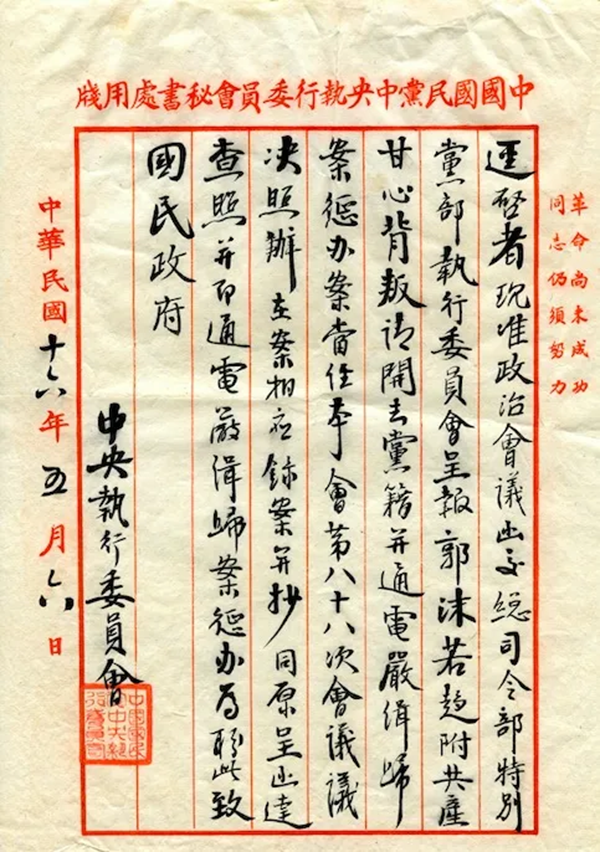 中國國民黨中央執行委員會秘書處用牋
革命尚未成功
同志仍須努力
逕啓者現准政治會議函交總司令部特別
黨部執行委員會呈報郭沫若趨附共產
甘心背叛請開去黨籍并通電嚴緝歸
案懲办案當经本會第八十八次會議議
决照辦在案相应錄案并抄同原呈函達
查照并即通電嚴緝歸案懲办为荷此致
國民政府
中央執行委員會
中華民國十六年五月六日